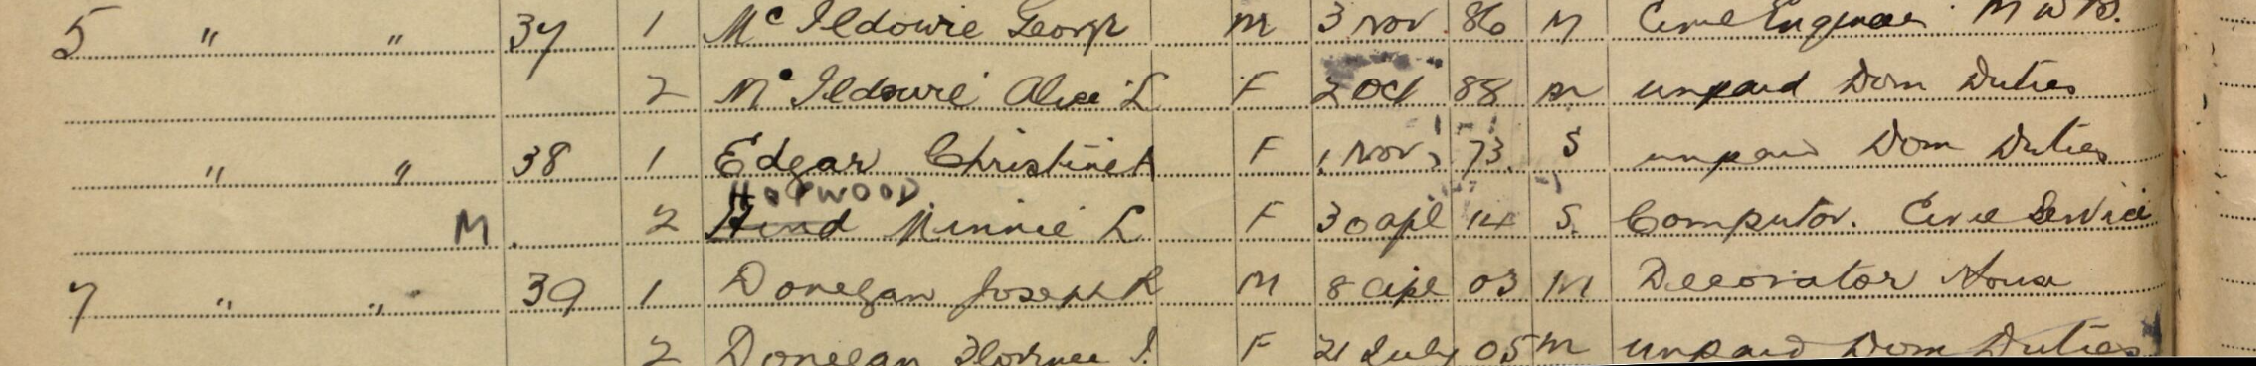 5 " " 37 1 Mc Ildowie George M 3 Nov 86 M Civil Engineer M W B.
2 Mc Ildowie Alice L F 2 Oct 88 M unpaid Dom Duties
" " 38 1 Edgar Christine A F 1 Nov 73 S unpaid Dom Duties
HOPWOOD
M 2 Hind Minnie L F 30 Apl 14 S. Computor. Civil Service
7 " " 39 1 Donegan Joseph R M 8 Apl 03 M Decorator House
2 Donegan Florence I. F 21 July 05 M unpaid Dom Duties